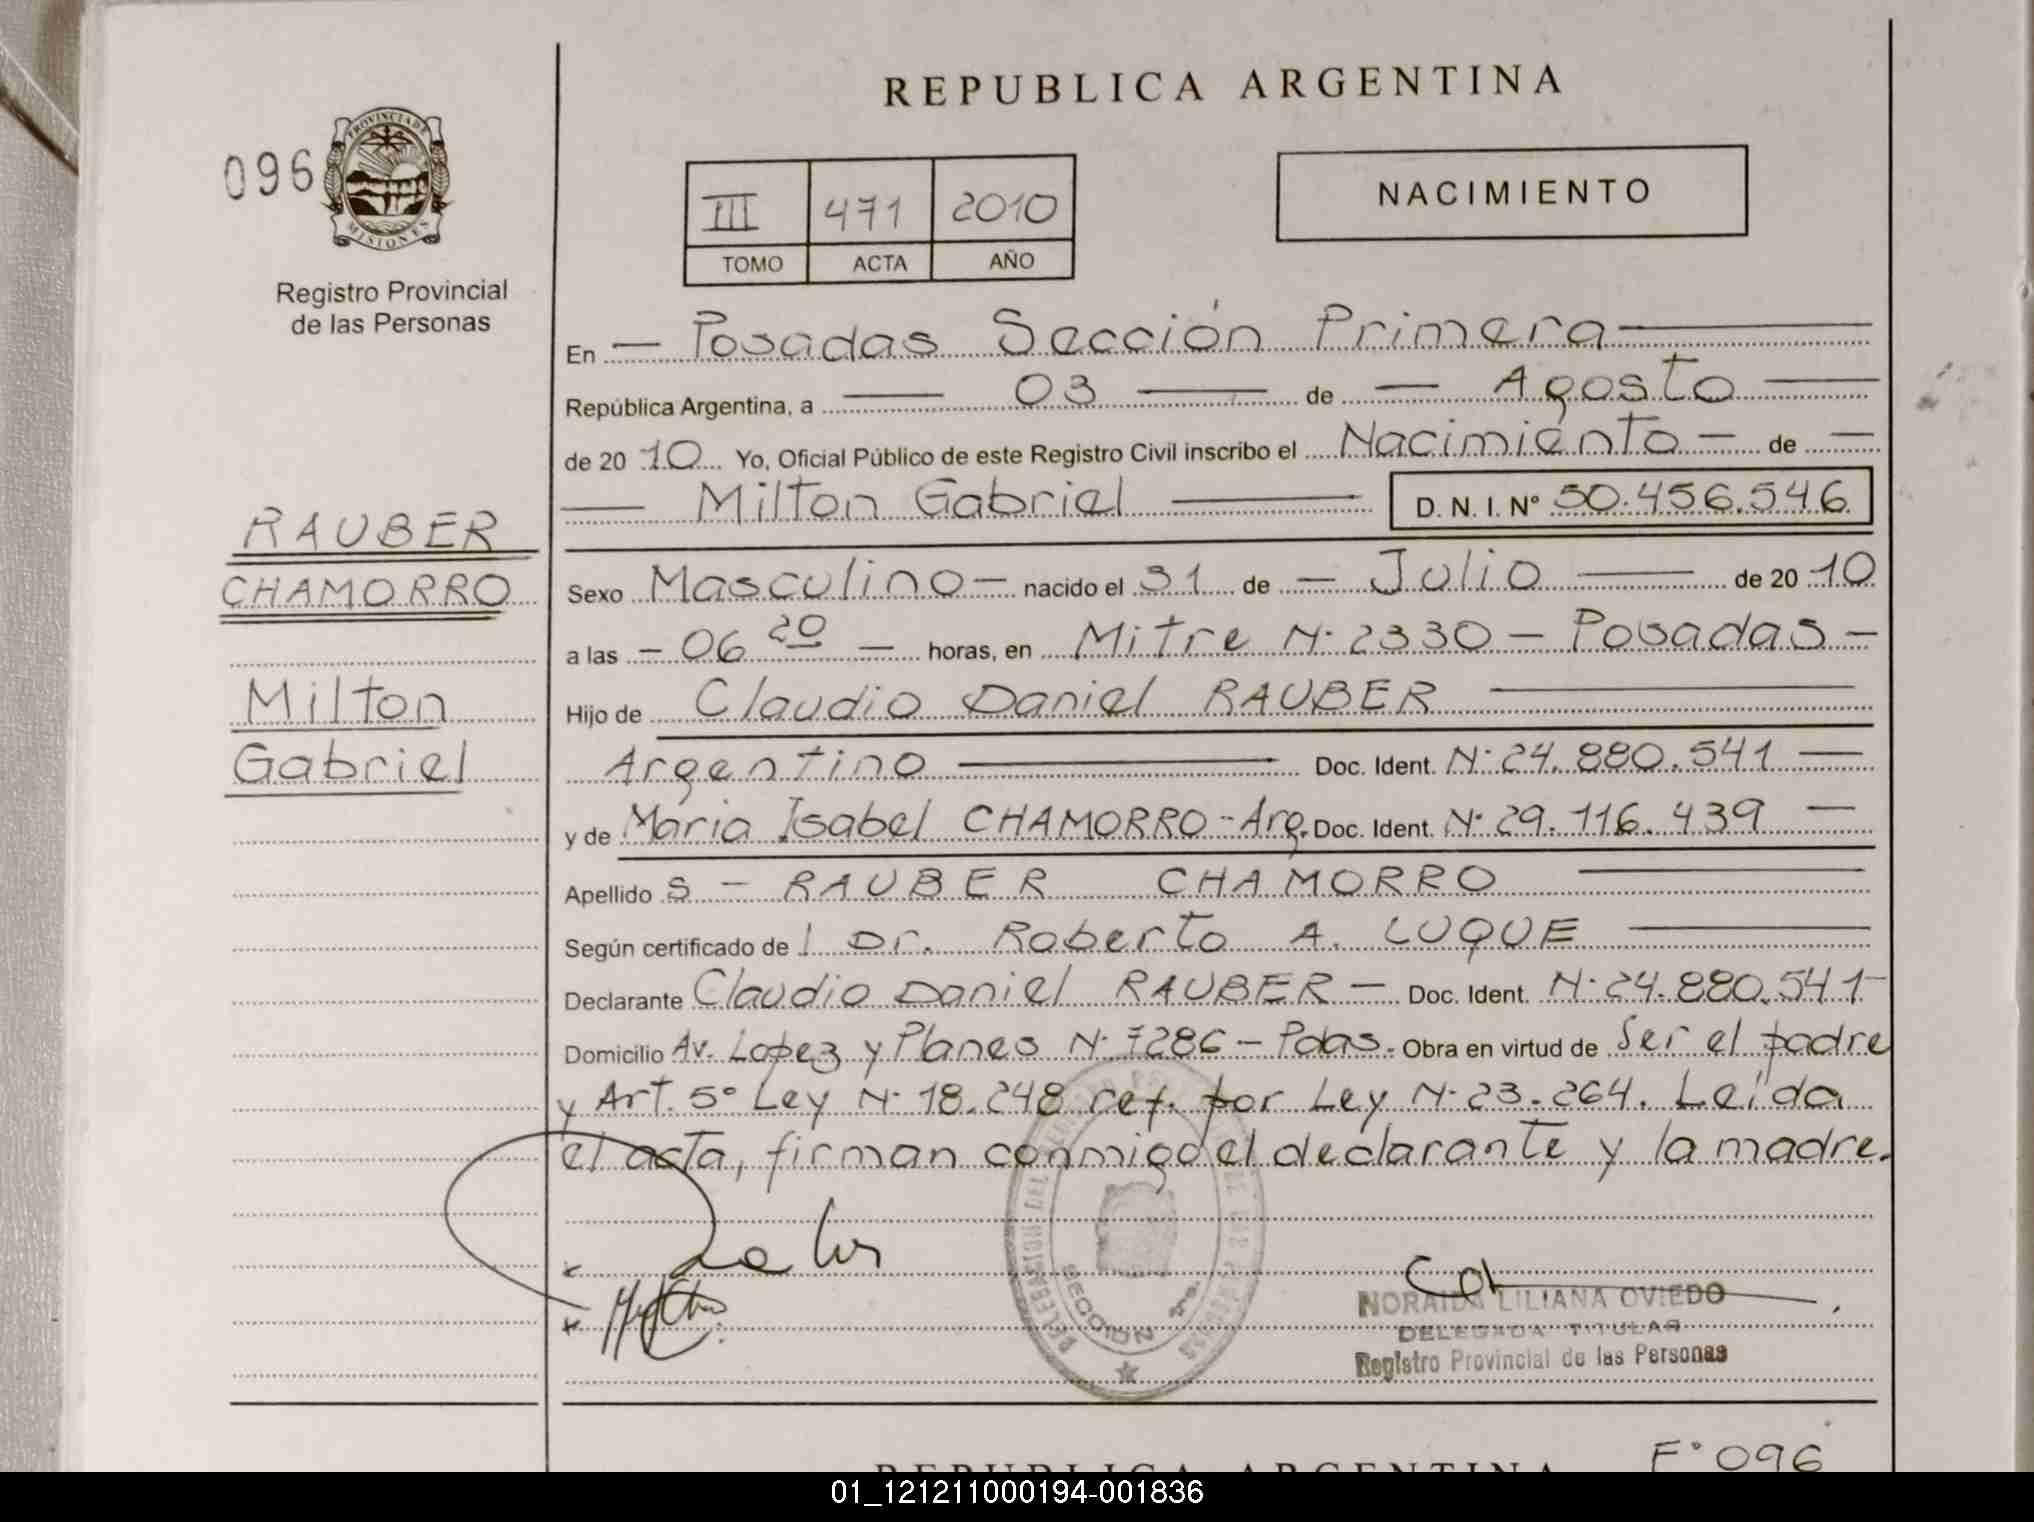 REPUBLICA ARGENTINA
096
PROVINCIA DE
MISIONES
Registro Provincial
de las Personas
III 471 2010
TOMO ACTA AÑO
NACIMIENTO
RAUBER
CHAMORRO
Milton
Gabriel
En — Posadas Sección Primera —
República Argentina, a — 03 — de — Agosto —
de 20 10 Yo, Oficial Público de este Registro Civil inscribo el Nacimiento — de —
— Milton Gabriel — D. N. I. N° 50.456.546
Sexo Masculino — nacido el 31 de — Julio — de 20 10
a las — 06 20 — horas, en Mitre N° 2330 — Posadas —
Hijo de Claudio Daniel RAUBER —
Argentino — Doc. Ident. N° 24.880.541 —
y de Maria Isabel CHAMORRO - Arg. Doc. Ident. N° 29.116.439 —
Apellido s — RAUBER CHAMORRO —
Según certificado de l Dr. Roberto A. LUQUE —
Declarante Claudio Daniel RAUBER — Doc. Ident. N° 24.880.541 -
Domicilio Av. Lopez y Planes N° 7286 — Pdas. Obra en virtud de Ser el padre
y Art. 5° Ley N° 18.248 ref. por Ley N° 23.264. Leída
el acta, firman conmigo el declarante y la madre.
SECCION 1ra.
NORAIDA LILIANA OVIEDO
DELEGADA TITULAR
Registro Provincial de las Personas
F° 096
REPUBLICA ARGENTINA
01_121211000194-001836